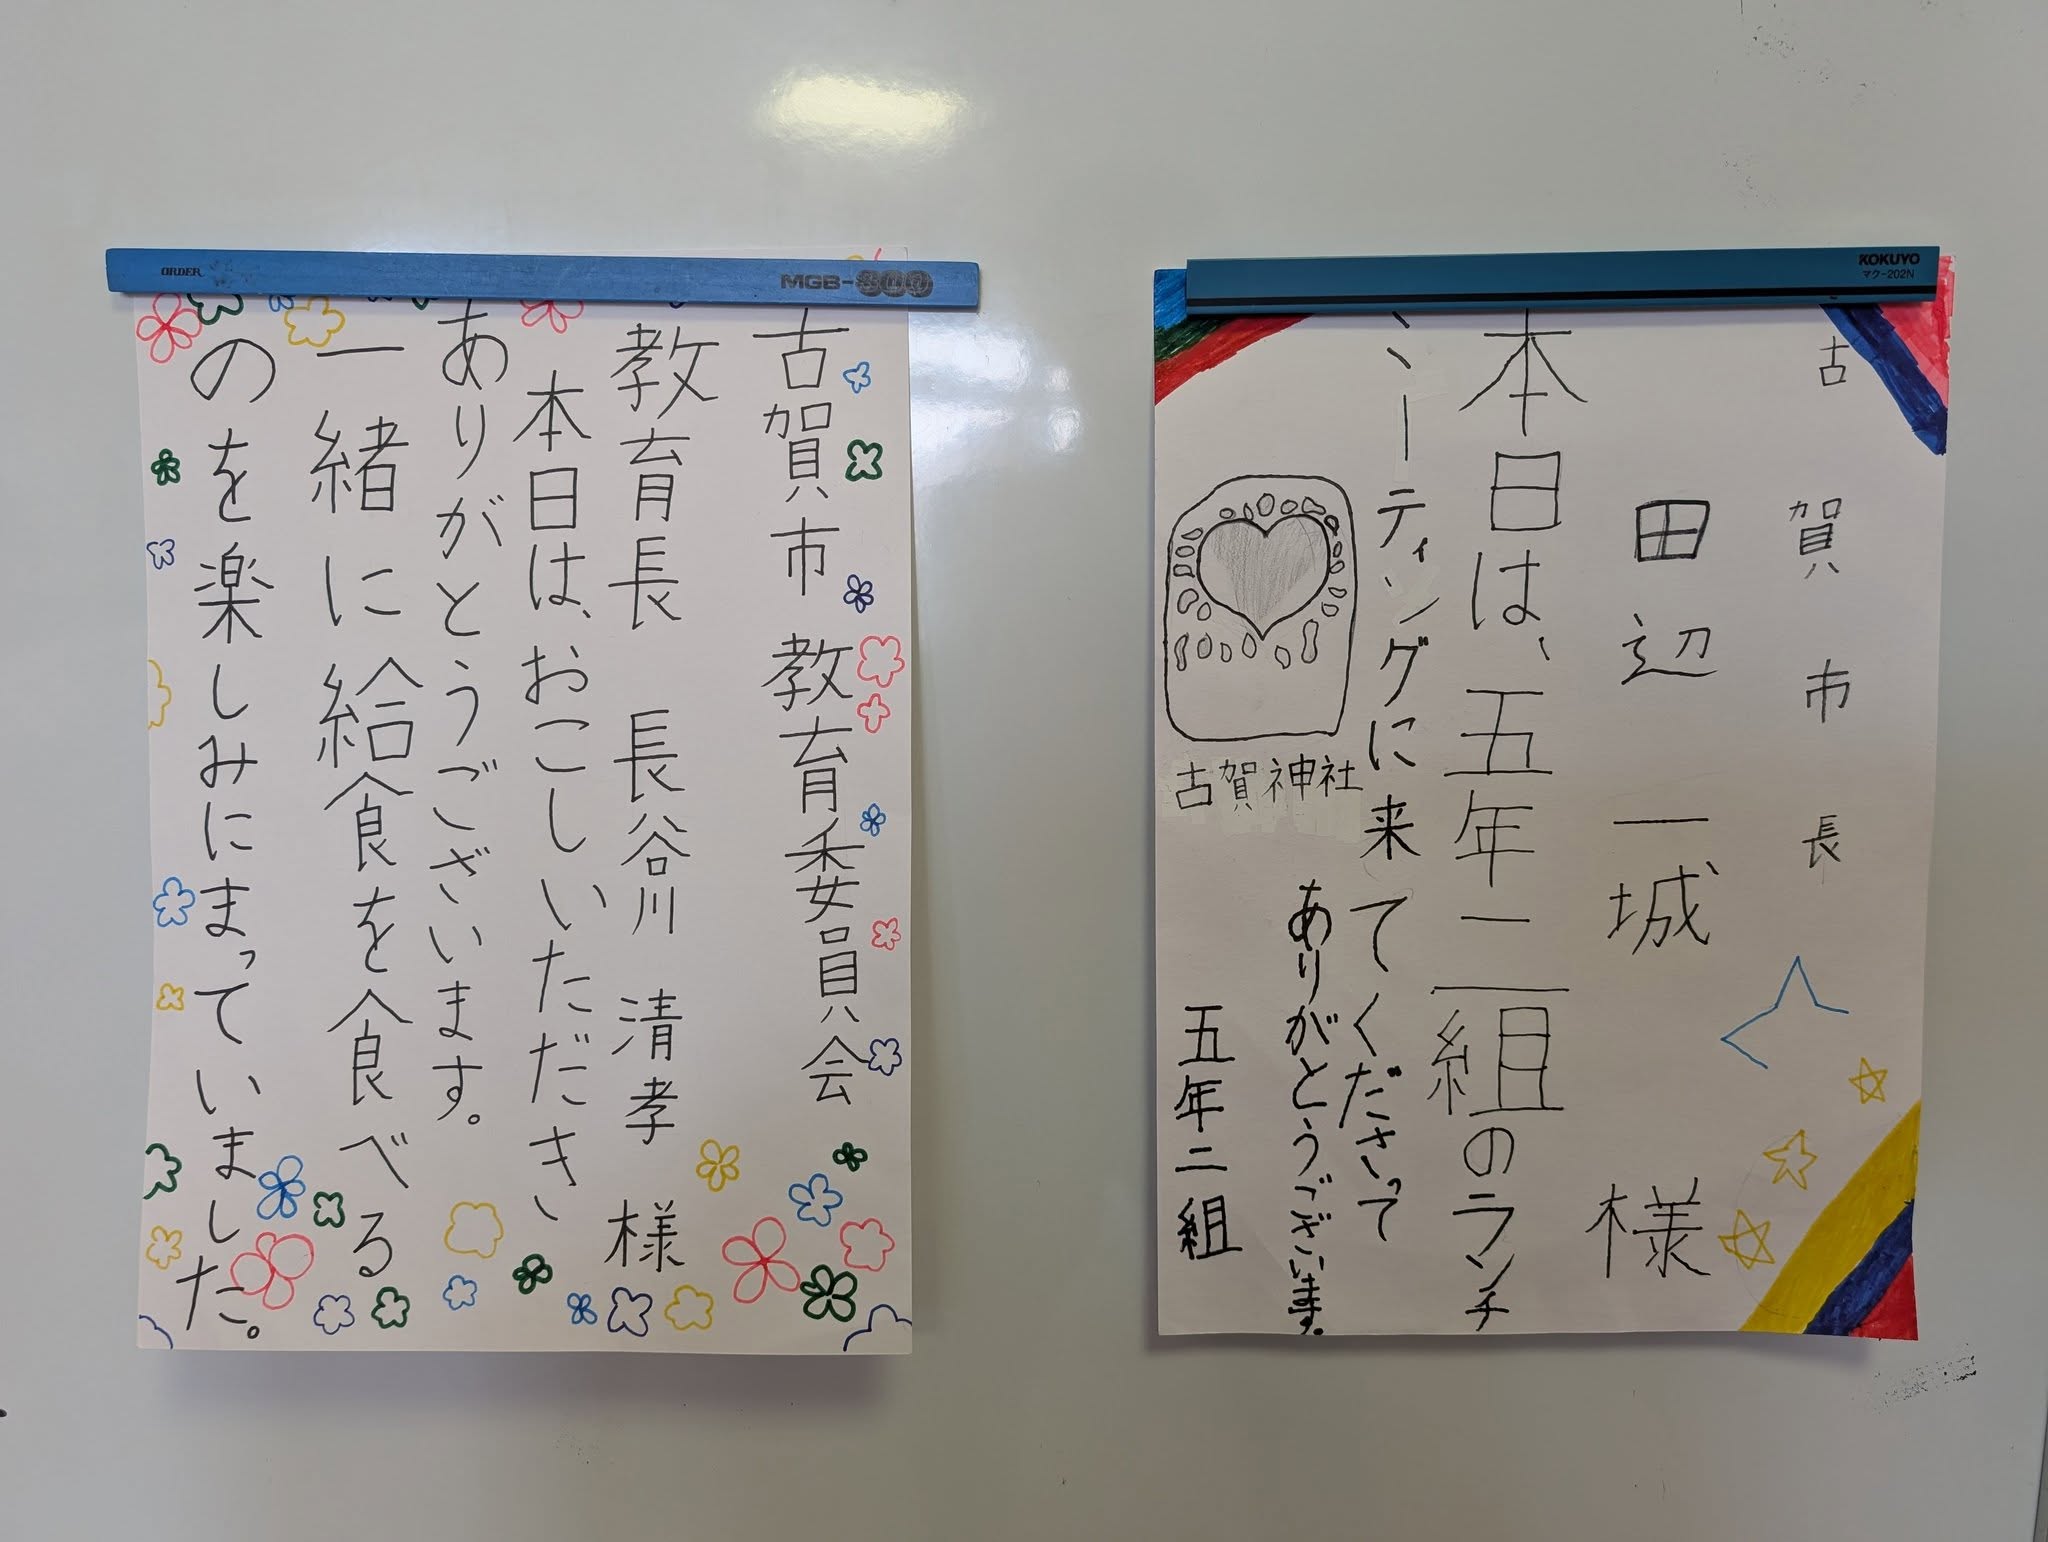 ORDER
古賀市 教育委員会
教育長 長谷川 清孝 様
本日は、おこしいただき、
ありがとうございます。
一緒に給食を食べる
のを楽しみにまっていました。
KOKUYO
マク-202N
古賀市長
田辺一城 様
本日は、五年二組のランチ
ミーティングに来てくださって
ありがとうございます。
古賀神社
五年二組